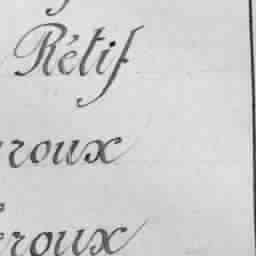 Rétif
roux
roux